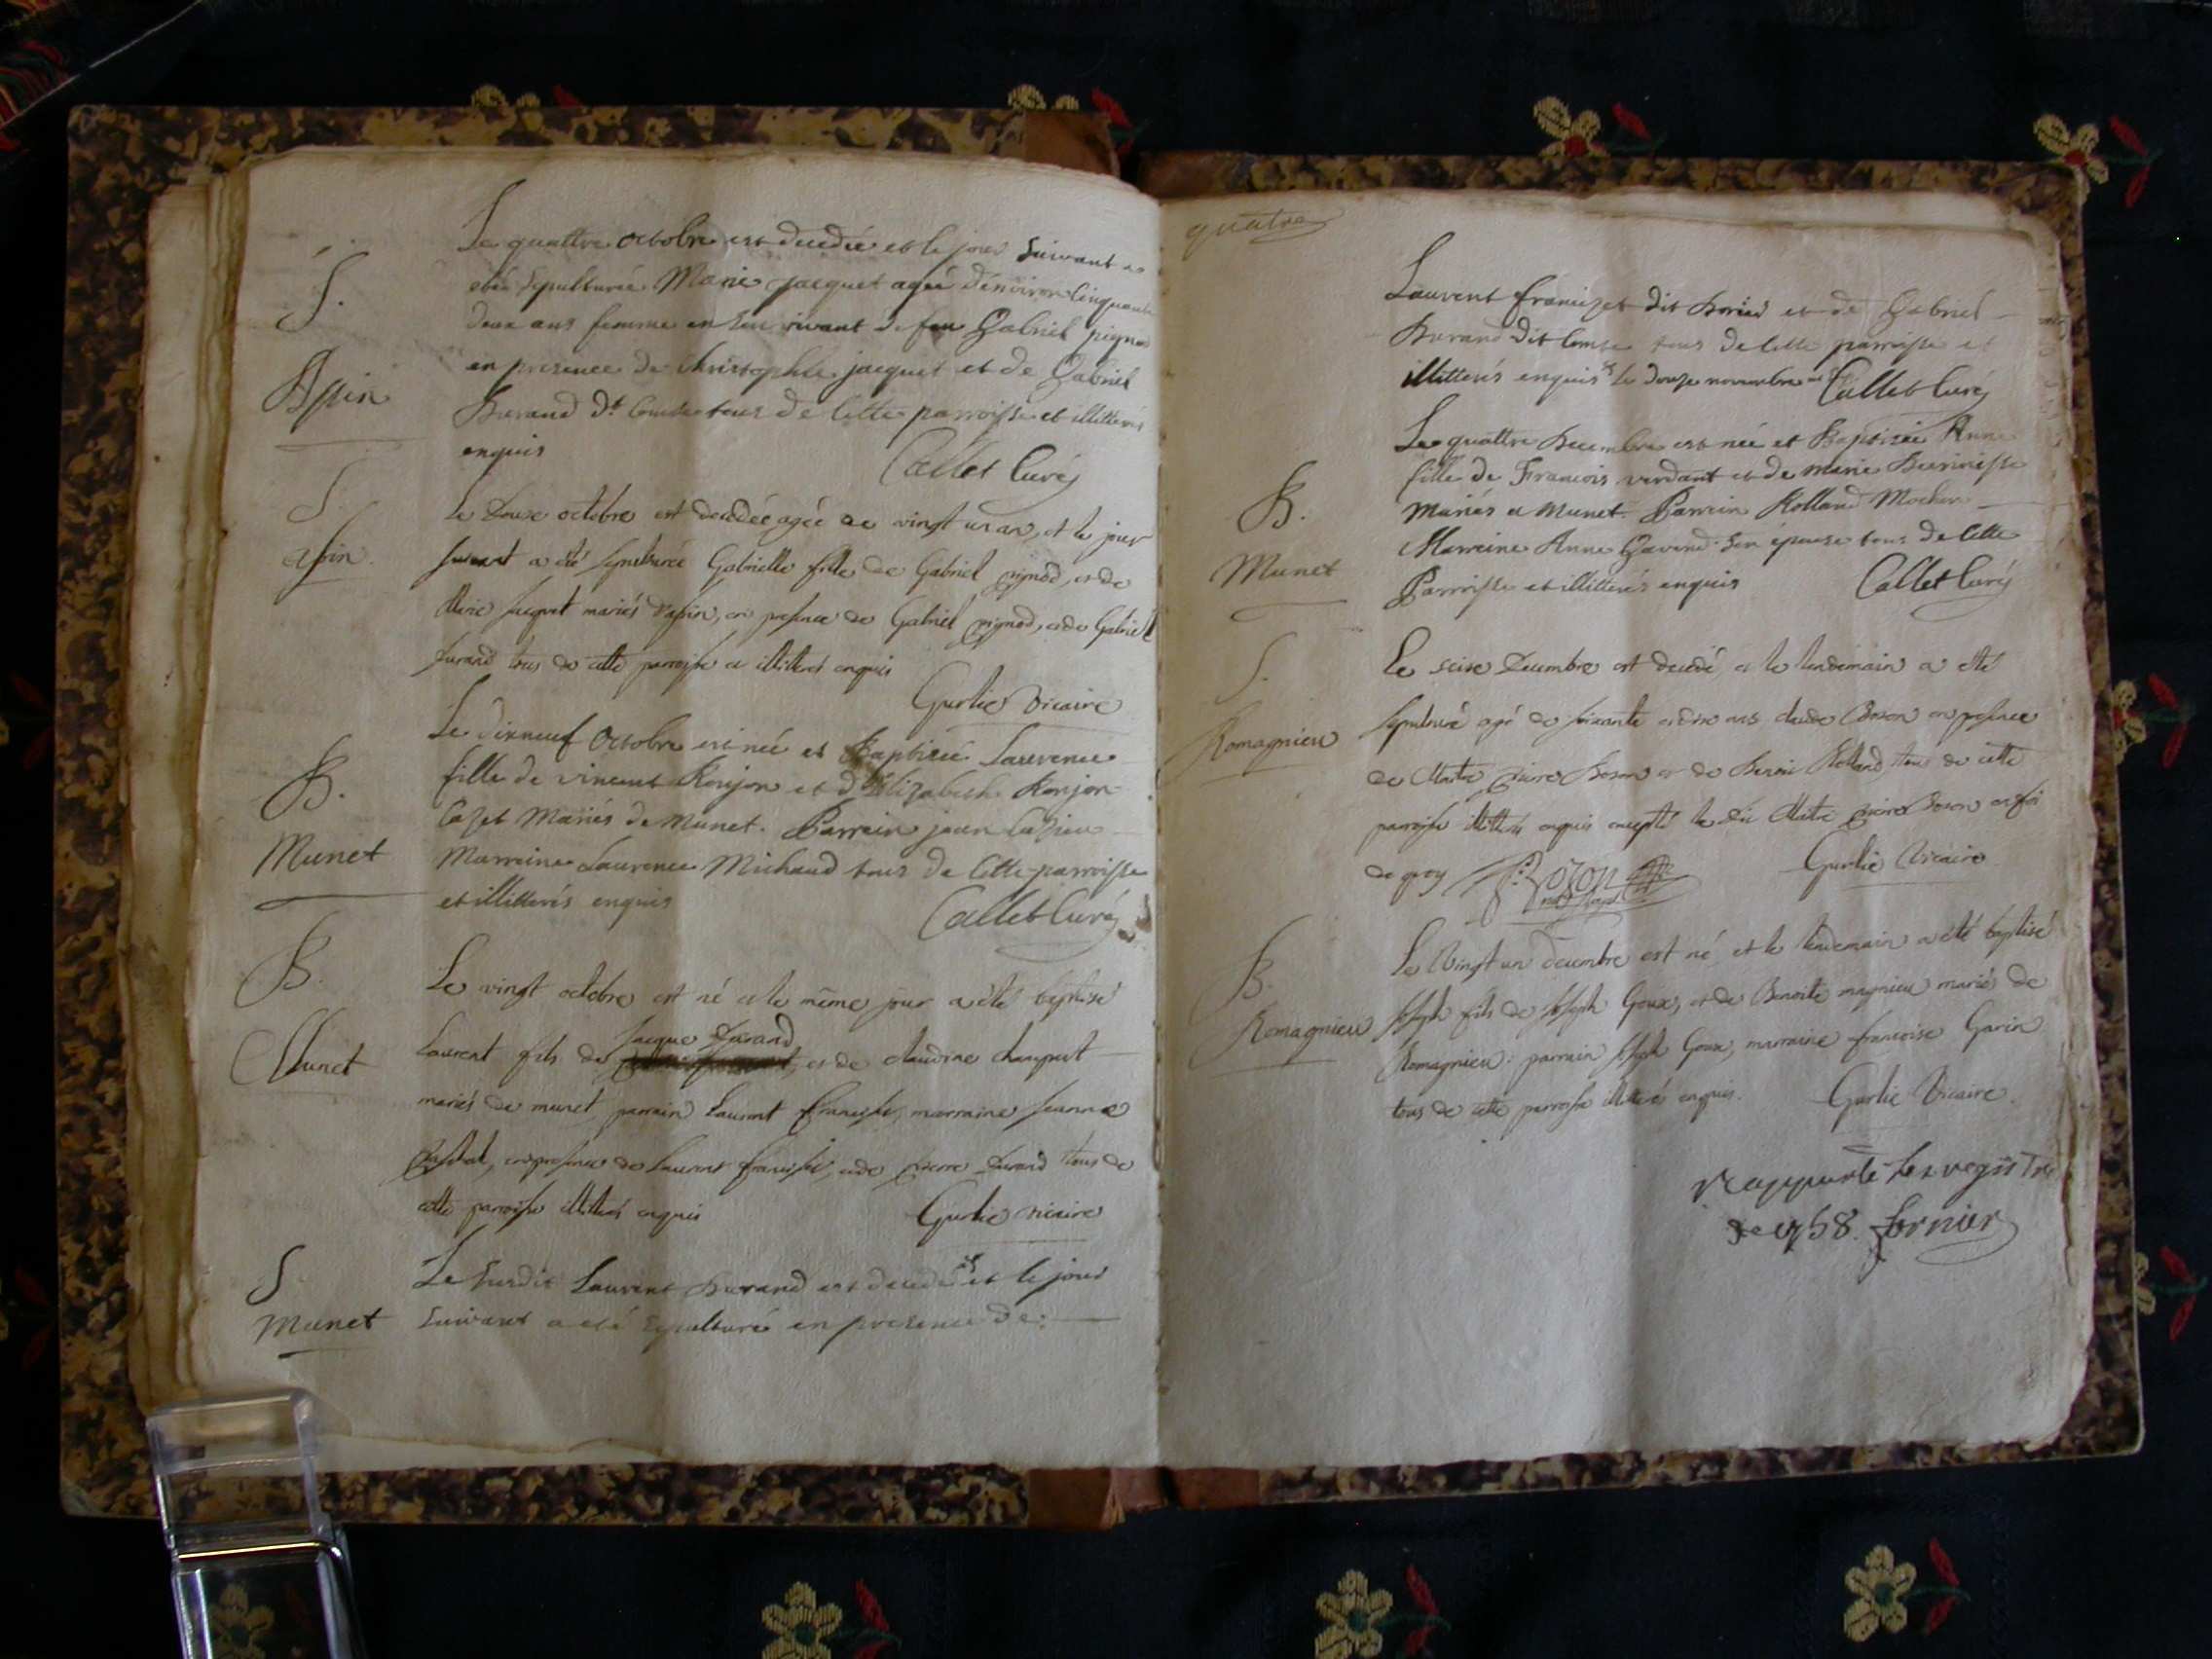 S.
Apin
Le quattre octobre est decedée et le jour suivant a
etée sepulturée Marie jacquet agée d'environ cinquante
deux ans femme en son vivant de feu Gabriel pignod
en presence de Christophle jacquet et de Gabriel
Durand dt Comte tous de cette parroisse et illitterés
enquis Callet Curé
S.
apin
Le Douse octobre est decedée agée de vingt un an, et le jour
suivant a été sepulturée Gabrielle fille de Gabriel pignod, et de
Marie Jacquet mariés d'apin, en presence de Gabriel pignod, et de Gabriel
Durand tous de cette parroisse et illitterés enquis
Gurlie Vicaire
B.
Munet
Le dixneuf Octobre est née et Baptisée Laurence
fille de vincent Ronjon et d'Elizabeth Ronjon
Cazet Mariés de Munet. Parrein jean
Marreine Laurence Michaud tous de Cette parroisse
et illitterés enquis Callet Curé
B.
Munet
Le vingt octobre est né et le même jour a été baptisé
Jacque Durand
Laurent fils de et de claudine
mariés de munet parrain Laurent marraine Jeanne
en presence de Laurent et de pierre Durand tous de
cette parroisse illitterés enquis Gurlie vicaire
S
Munet
Le Susdit Laurent Durand est decedé et le jour
suivant a eté sepulturé en presence de:
quatre
Laurent dit et de Gabriel
Durand dit Comte tous de Cette parroisse et
illitterés enquis le douze novembre Callet Curé
B.
Munet
Le quattre Decembre est née et Baptisée Anne
fille de Francois verdant et de marie
Mariés a Munet. Parrein Rolland
Marreine Anne Gavend son épouse tous de Cette
Parroisse et illitterés enquis Callet Curé
S.
Romagnieu
Le seise Decembre est decedé, et le lendemain a eté
sepulturé agé de soixante et dix ans claude Boson en presence
de Maitre pierre Boson et de Rolland tous de cette
parroisse illitterés enquis excepté le dit Maitre pierre Boson en foi
de quoy P. Bozon Gurlie Vicaire
B.
Romagnieu
Le Vingt un decembre est né et le lendemain a été baptisé
Joseph fils de Joseph Goux, et de Benoite magnieu mariés de
Romagnieu: parrain Joseph Goux, marraine francoise Garin
tous de cette parroisse illitterés enquis. Gurlie Vicaire.
rapporté les registre
de 1758. fornier